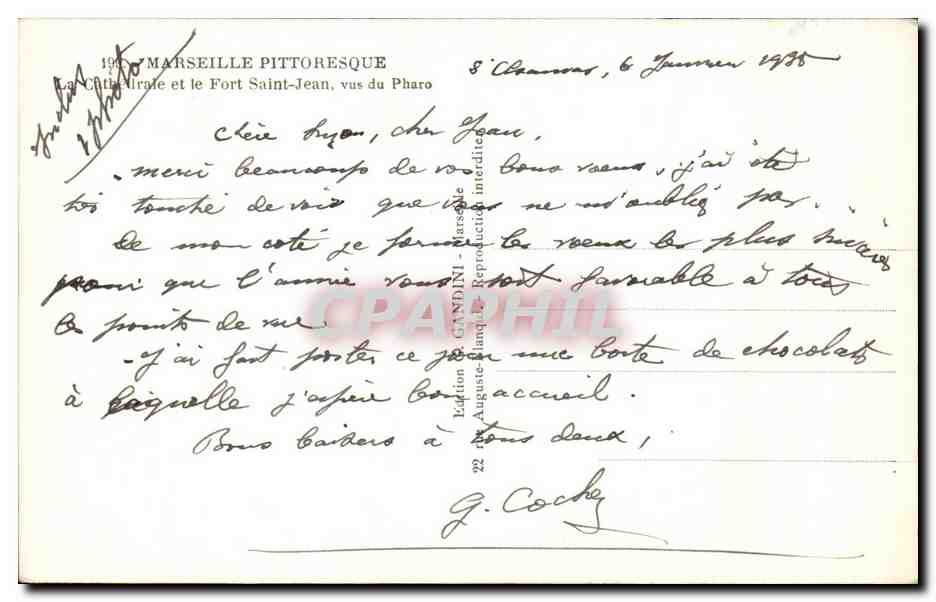 MARSEILLE PITTORESQUE
La Cathédrale et le Fort Saint-Jean, vus du Pharo
St Chamas, 6 Janvier 1935
Inclus
1 photo
Chère Suzon, cher Jean,
- merci beaucoup de vos bons voeux, j'ai été
très touché de voir que vous ne m'oubliez pas.
De mon coté je forme les voeux les plus sincères
pour que l'année vous soit favorable à tous
les points de vue.
- J'ai fait poster ce jour une boite de chocolats
à laquelle j'espère bon accueil.
Bons baisers à tous deux,
G. Cochez
Edition D. GANDINI - Marseille
22 rue Auguste-Blanqui - Reproduction interdite
CPAPHIL